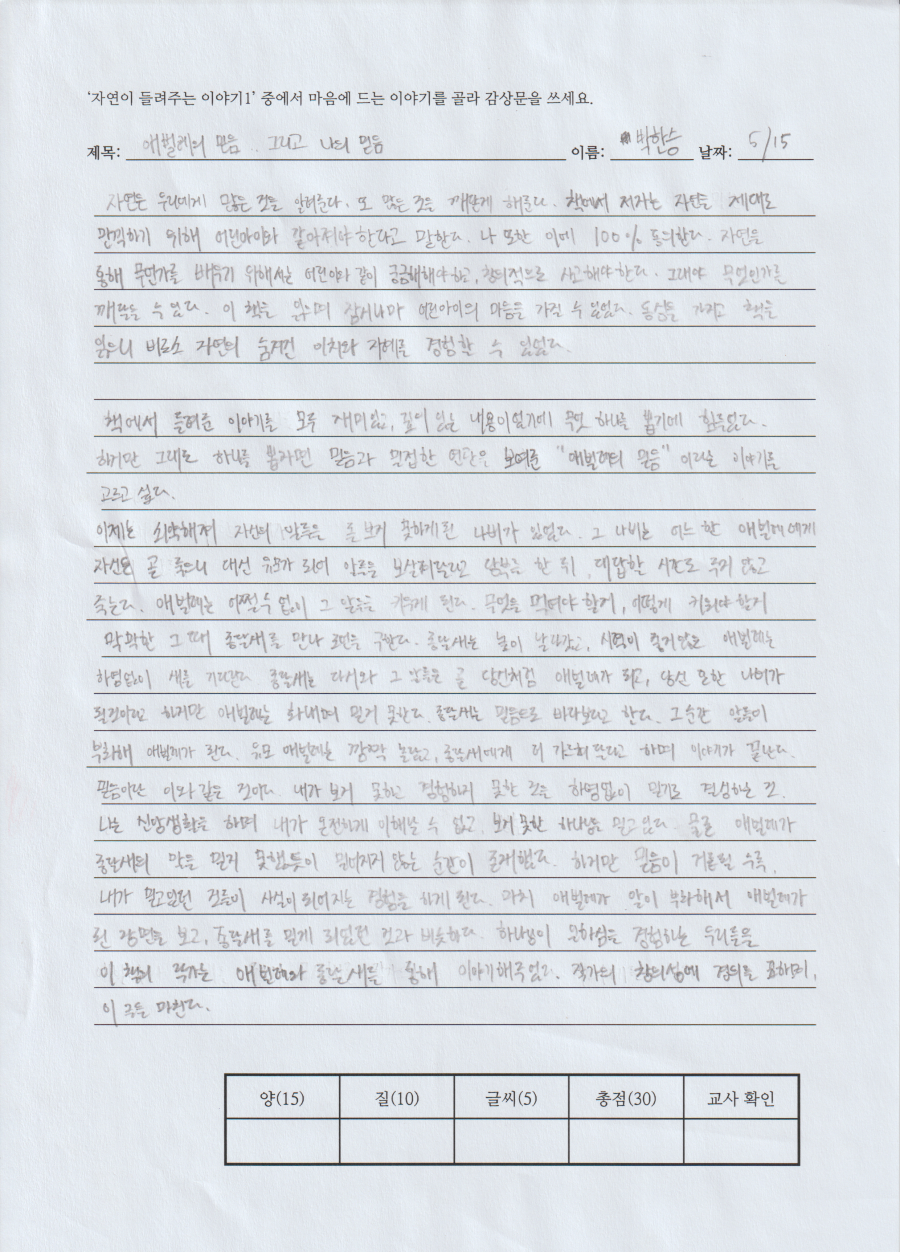 '자연이 들려주는 이야기1' 중에서 마음에 드는 이야기를 골라 감상문을 쓰세요.
제목: 애벌레의 믿음 그리고 나의 믿음 이름: 박한승 날짜: 5/15
자연은 우리에게 많은 것을 알려준다. 또 많은 것을 깨닫게 해준다. 책에서 저자는 자연을 제대로
만끽하기 위해 어린아이와 같아져야 한다고 말한다. 나 또한 이에 100% 동의한다. 자연을
통해 무언가를 배우기 위해서는 어린이와 같이 궁금해해야하고, 창의적으로 사고해야한다. 그래야 무엇인가를
깨달을 수 있다. 이 책을 읽으며 잠시나마 어린아이의 마음을 가질 수 있었다. 동심을 가지고 책을
읽으니 비로소 자연의 숨겨진 이치와 지혜를 경험할 수 있었다.
책에서 들려준 이야기를 모두 재미있고, 깊이 있는 내용이었기에 무엇 하나를 뽑기에 힘들었다.
하지만 그래도 하나를 뽑자면 믿음과 밀접한 연관을 보여준 "애벌레의 믿음" 이라는 이야기를
고르고 싶다.
이제는 쇠약해져 자신의 알들을 돌보지 못하게 된 나비가 있었다. 그 나비는 어느 한 애벌레에게
자신은 곧 죽으니 대신 유모가 되어 알들을 보살펴달라고 당부를 한 뒤, 대답할 시간도 주지 않고
죽는다. 애벌레는 어쩔수 없이 그 알들을 키우게 된다. 무엇을 먹여야 할지, 어떻게 키워야 할지
막막한 그 때 종달새를 만나 조언을 구한다. 종달새는 높이 날아갔고, 시력이 좋지않은 애벌레는
하염없이 새를 기다린다. 종달새는 다시와 그 알들은 곧 당신처럼 애벌레가 되고, 당신 또한 나비가
될것이라고 하지만 애벌레는 화내며 믿지 못한다. 종달새는 믿음으로 바라보라고 한다. 그순간 알들이
부화해 애벌레가 된다. 유모 애벌레는 깜짝 놀랐고, 종달새에게 더 가르쳐 달라고 하며 이야기가 끝난다.
믿음이란 이와 같은 것이다. 내가 보지 못하고 경험하지 못한 것을 하염없이 믿기로 결심하는 것.
나는 신앙생활을 하며 내가 온전하게 이해할 수 없고, 보지 못한 하나님을 믿고 있다. 물론 애벌레가
종달새의 말을 믿지 못했듯이 믿어지지 않는 순간이 존재했다. 하지만 믿음이 거듭될 수록,
내가 믿고있던 것들이 사실이 되어지는 경험을 하게 된다. 마치 애벌레가 알이 부화해서 애벌레가
된 장면을 보고, 종달새를 믿게 되었던 것과 비슷하다. 하나님의 운하심을 경험하는 우리들을
이 책의 작가는 애벌레와 종달새를 통해 이야기해주었다. 작가의 창의성에 경의를 표하며,
이 글을 마친다.
양(15) 질(10) 글씨(5) 총점(30) 교사 확인